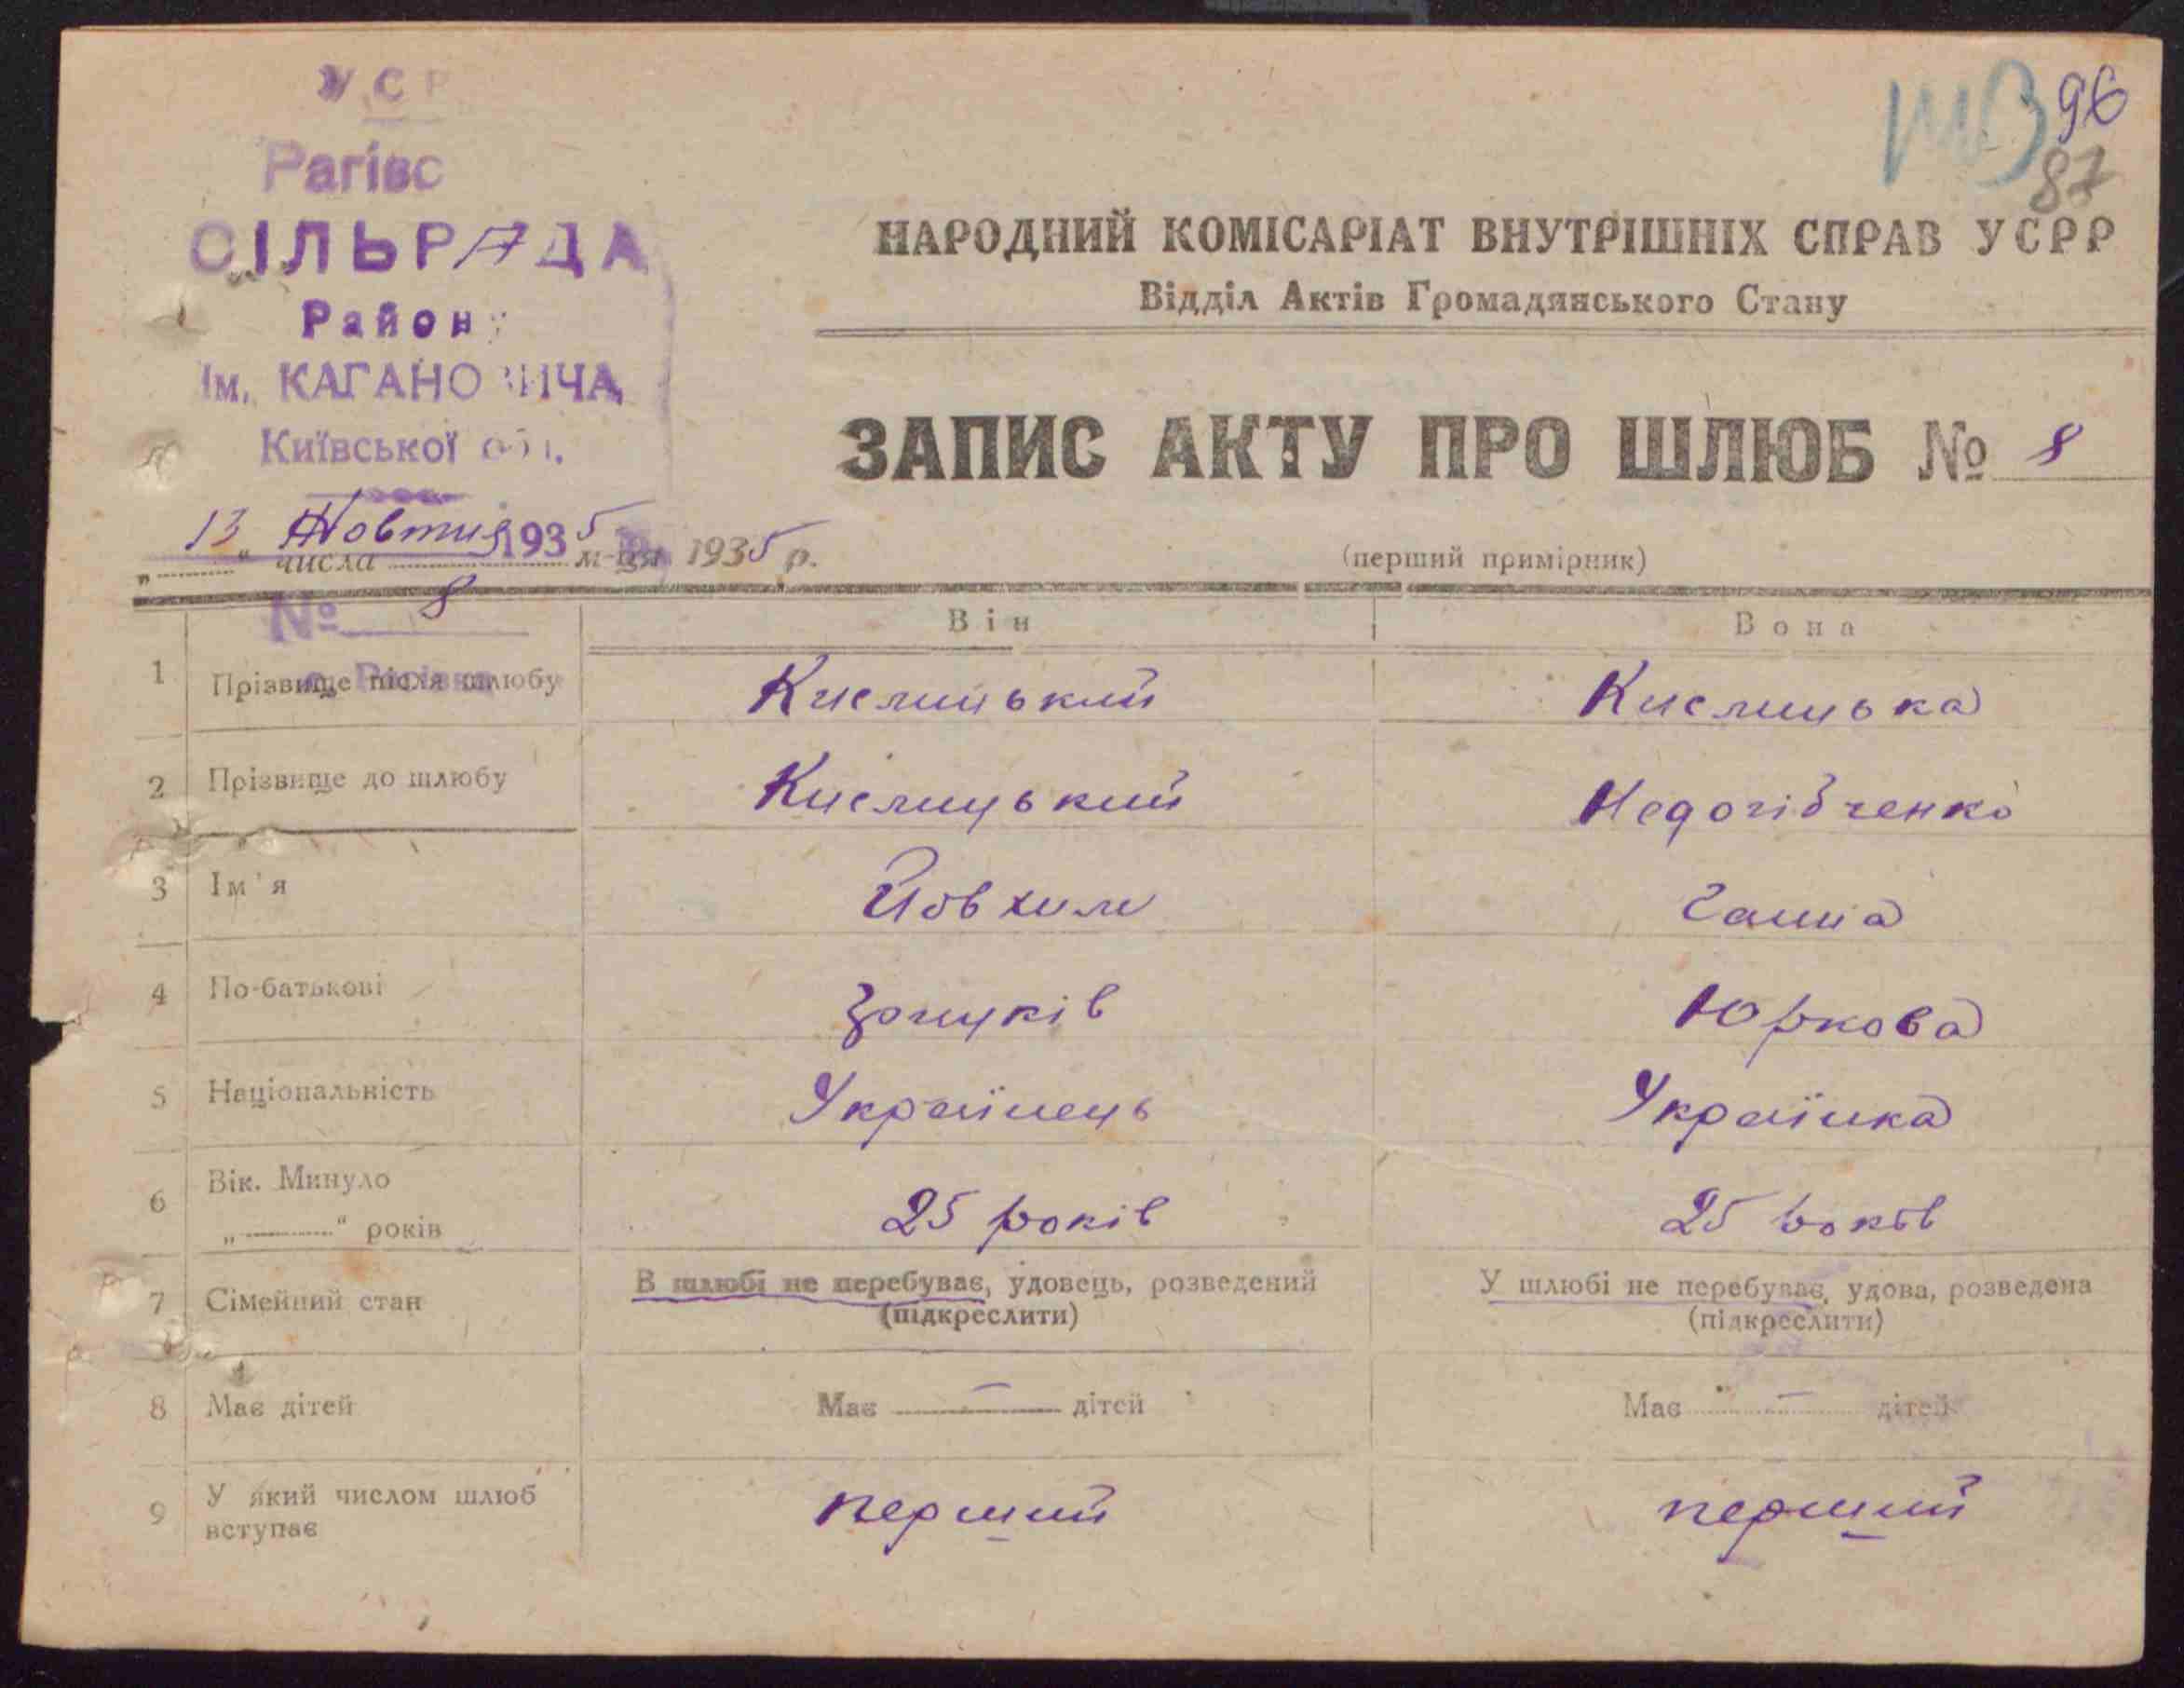 УСР
Рагівс
СІЛЬРАДА
Району
Ім. КАГАНОВИЧА
Київської обл.
13 Жовтня 1935
№ 8
96
87
НАРОДНИЙ КОМІСАРІАТ ВНУТРІШНІХ СПРАВ УСРР
Відділ Актів Громадянського Стану
ЗАПИС АКТУ ПРО ШЛЮБ № 8
„ “ числа м-ця 1935 р.
(перший примірник)
Він Вона
1 Прізвище після шлюбу Кислицький Кислицька
2 Прізвище до шлюбу Кислицький Недогібченко
3 Ім'я Йовхим Ганна
4 По-батькові Юркова
5 Національність Українець Українка
6 Вік. Минуло
„ “ років 25 років 25 років
7 Сімейний стан В шлюбі не перебуває, удовець, розведений У шлюбі не перебуває, удова, розведена
(підкреслити) (підкреслити)
8 Має дітей Має — дітей Має — дітей
9 У який числом шлюб
вступає перший перший